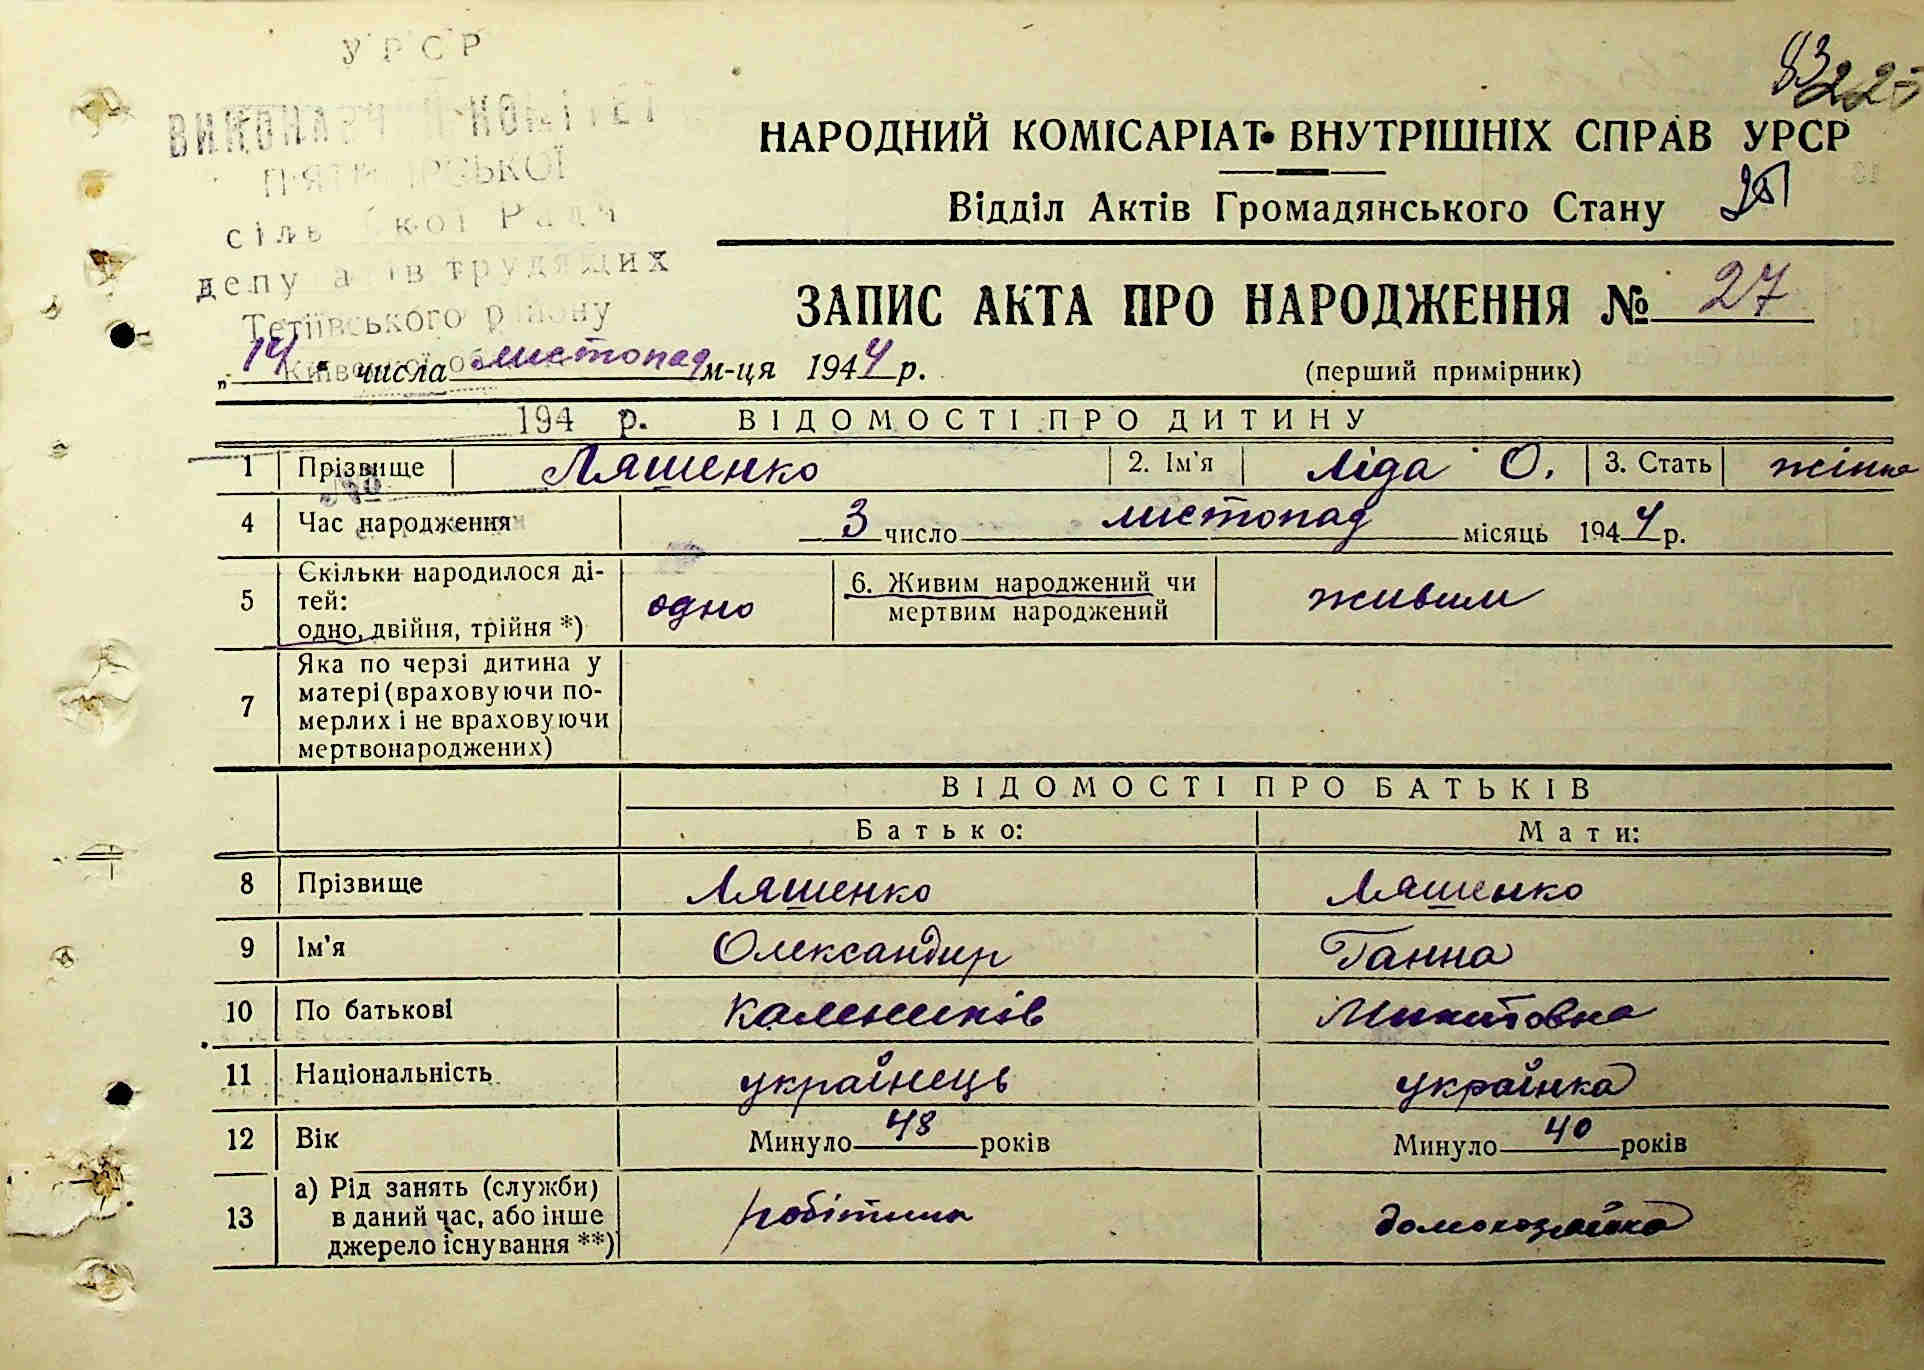 УРСР
ВИКОНАВЧИЙ КОМІТЕТ
П'ЯТИГІРСЬКОЇ
сільської Ради
депутатів трудящих
Тетіївського району
Київської
194 р.
№
83
225
НАРОДНИЙ КОМІСАРІАТ ВНУТРІШНІХ СПРАВ УРСР
Відділ Актів Громадянського Стану
ЗАПИС АКТА ПРО НАРОДЖЕННЯ № 27
„14“ числа листопад м-ця 1944 р. (перший примірник)
ВІДОМОСТІ ПРО ДИТИНУ
1 Прізвище Ляшенко 2. Ім'я Ліда О. 3. Стать жінка
4 Час народження 3 число листопад місяць 1944 р.
5 Скільки народилося ді-
тей:
одно, двійня, трійня *) одно
6. Живим народжений чи
мертвим народжений живим
7 Яка по черзі дитина у
матері (враховуючи по-
мерлих і не враховуючи
мертвонароджених)
ВІДОМОСТІ ПРО БАТЬКІВ
Батько: Мати:
8 Прізвище Ляшенко Ляшенко
9 Ім'я Олександир Ганна
10 По батькові Калеников Микитовна
11 Національність українець українка
12 Вік Минуло 48 років Минуло 40 років
13 а) Рід занять (служби)
в даний час, або інше
джерело існування **) робітник домохозяйка